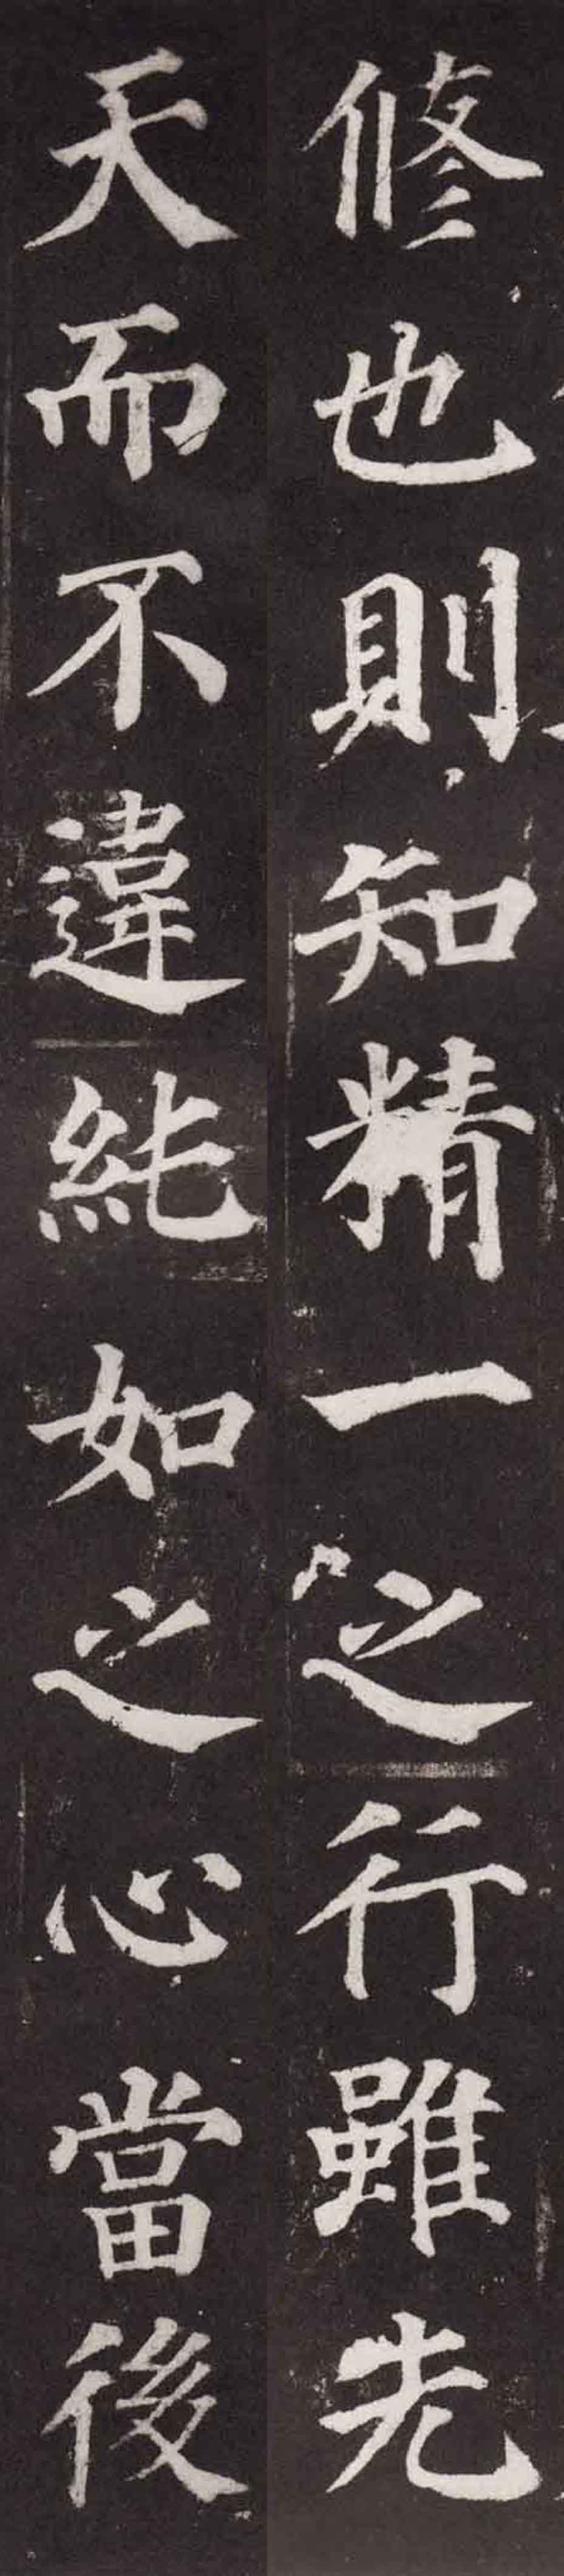 修也則知精一之行雖先
天而不違純如之心當後